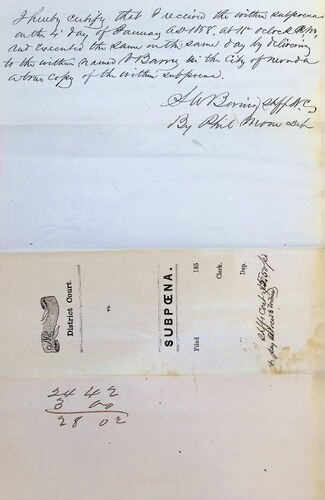 I hereby certify that I received the within subpoena
on the 4th day of January AD 1858, at 11 oclock A.M.
and executed the same on the same day by delivering
to the within named Barry in the city of nevada
a true copy of the within subpoena.
S W Boring Shff N. C.
By Phil Moore
District Court.
vs.
SUBPŒNA.
Filed 185
Clerk.
Dep.
24 42
3 00
28 02